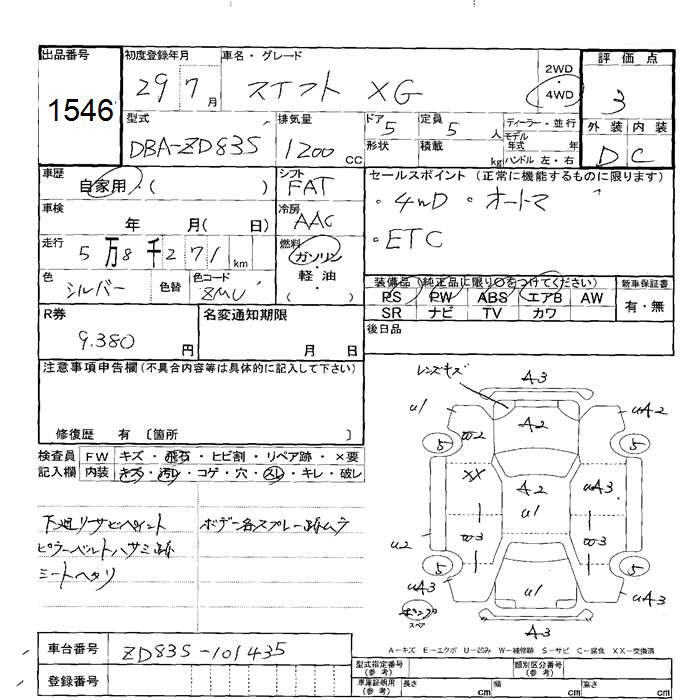 出品番号
1546
初度登録年月
29 7 月
車名・グレード
スイフト XG
2WD
・
4WD
評価点
3
外装 内装
D C
型式
DBA-ZD83S
排気量
1200 CC
ドア
5
定員
5 人
形状
積載
kg
ディーラー・並行
モデル
年式 年
ハンドル 左・右
車歴
自家用・( )
シフト
FAT
セールスポイント (正常に機能するものに限ります)
・4WD ・オートマ
・ETC
車検
年 月( 日)
冷房
AAC
走行
5 万 8 千 2 7 1 km
燃料
ガソリン
・
軽・油
( )
色
シルバー
色替
色コード
装備品 (純正品に限り○をつけてください)
PS PW ABS エアB AW
SR ナビ TV カワ
新車保証書
有・無
R券
9.380 円
名変通知期限
月 日
後日品
注意事項申告欄 (不具合内容等は具体的に記入して下さい)
修復歴 有 〔箇所 〕
検査員
記入欄
FW キズ・飛石・ヒビ割・リペア跡・×要
内装 キズ・汚レ・コゲ・穴・スレ・キレ・破レ
下廻リサビペイント
ピラーベルトハサミ跡
シートヘタリ
ボデー各スプレー跡ムラ
レンズキズ
A3
u1
A2
uA2
W2
5
5
XX
A2
uA3
u1
u2
W3
W3
5
5
uA3
u1
uA3
スペア
A3
A-キズ E-エクボ U-凹み W-補修跡 S-サビ C-腐食 XX-交換済
車台番号
ZD83S-101435
登録番号
型式指定番号
(参考)
類別区分番号
(参考)
車庫証明用
(参考)
長さ cm
幅 cm
高さ cm